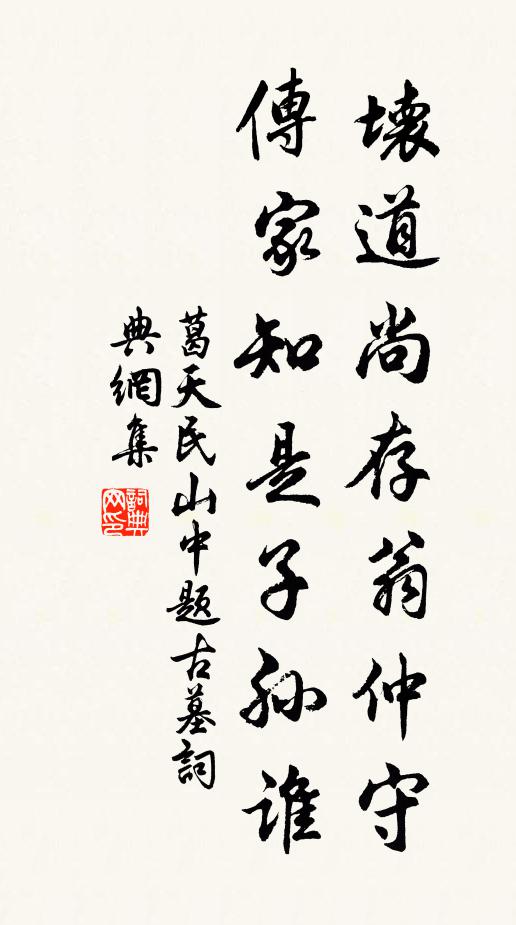 壞道尚存翁仲守
傳家知是子孫誰
葛天民山中題古墓詞
典網集
詞典
网印